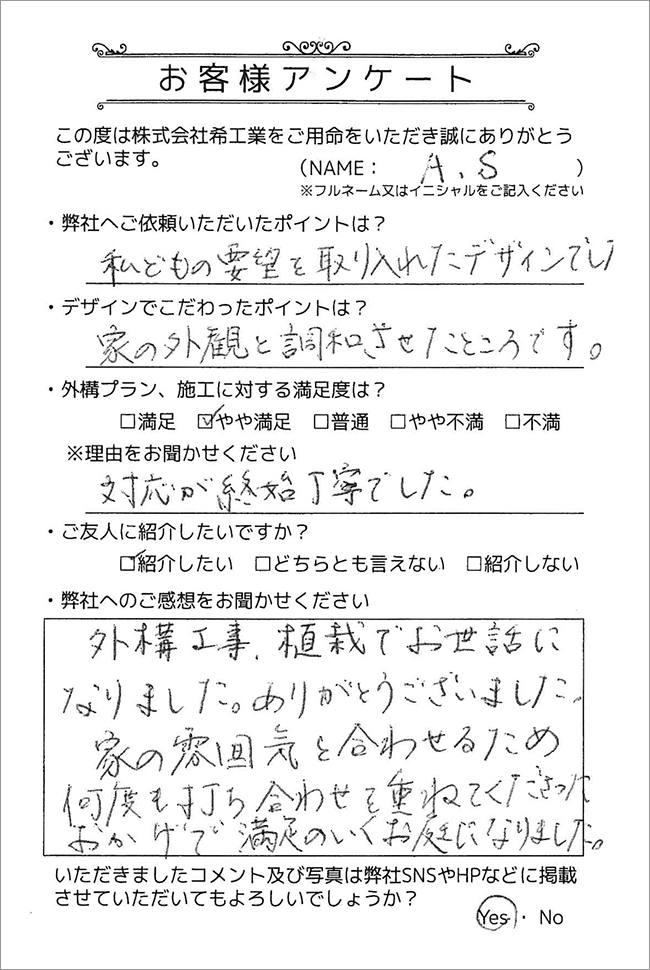 お客様アンケート
この度は株式会社希工業をご用命をいただき誠にありがとう
ございます。
（NAME： A.S ）
※フルネーム又はイニシャルをご記入ください
・弊社へご依頼いただいたポイントは？
私どもの要望を取り入れたデザインでした
・デザインでこだわったポイントは？
家の外観と調和させたところです。
・外構プラン、施工に対する満足度は？
□満足 ☑やや満足 □普通 □やや不満 □不満
※理由をお聞かせください
対応が終始丁寧でした。
・ご友人に紹介したいですか？
☑紹介したい □どちらとも言えない □紹介しない
・弊社へのご感想をお聞かせください
外構工事、植栽でお世話に
なりました。ありがとうございました。
家の雰囲気と合わせるため
何度も打ち合わせを重ねてくださった
おかげで満足のいくお庭になりました。
いただきましたコメント及び写真は弊社SNSやHPなどに掲載
させていただいてもよろしいでしょうか？
Yes・No